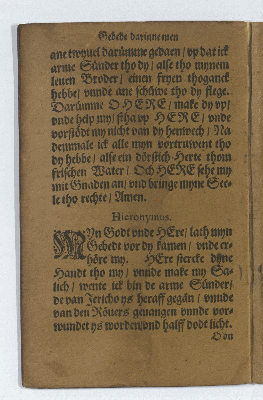 Gebedt darinne men
ane twyuel darümme gedaen / vp dat ick
arme Sünder tho dy / alse tho mynem
leuen Broder / einen fryen thoganck
hebbe / vnnde ane schüwe tho dy flege.
Darümme O HERE / make dy vp /
vnde help my / stha vp HERE / vnde
vorstödt my nicht van dy henwech / Na
demmale ick alle myn vortruwent tho
dy hebbe / alse ein dörstich Herte thom
frischen Water / Och HERE sehe my
mit Gnaden an / vnd bringe myne See-
le tho rechte / Amen.
Hieronymus.
MYn Godt vnde HEre / lath myn
Gebedt vor dy kamen / vnde er-
höre my. HEre stercke dyne
Handt tho my / vnnde make my Sa-
lich / wente ick bin de arme Sünder /
de van Jericho ys heraff gegån / vnnde
van den Röuers geuangen vnnde vor-
wundet ys worden vnd halff dodt licht.